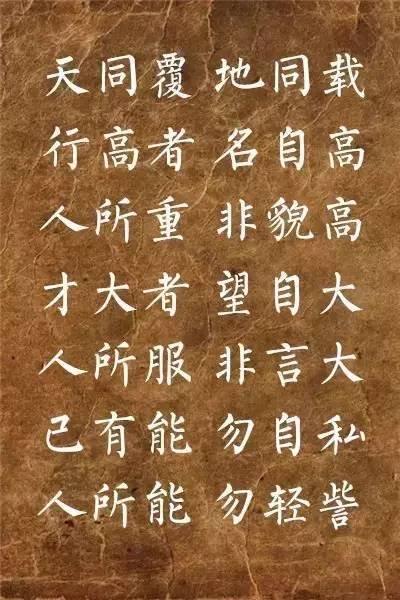 天同覆 地同载
行高者 名自高
人所重 非貌高
才大者 望自大
人所服 非言大
己有能 勿自私
人所能 勿轻訾